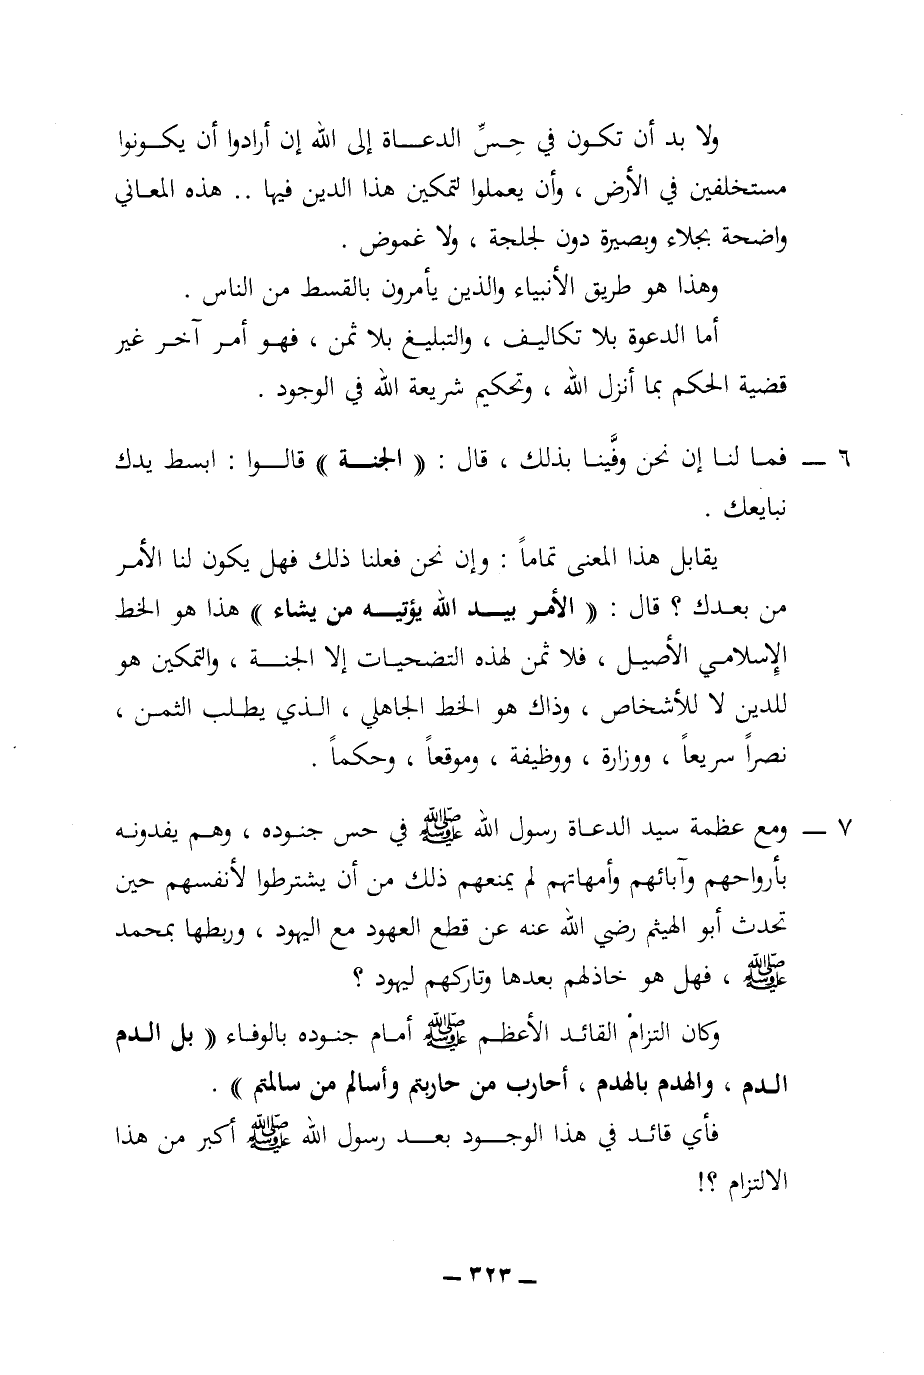 ولا بد أن تكون في حِسِّ الدعاة إلى الله إن أرادوا أن يكونوا
مستخلفين في الأرض ، وأن يعملوا لتمكين هذا الدين فيها .. هذه المعاني
واضحة بجلاء وبصيرة دون لجلجة ، ولا غموض .
وهذا هو طريق الأنبياء والذين يأمرون بالقسط من الناس .
أما الدعوة بلا تكاليف ، والتبليغ بلا ثمن ، فهو أمر آخر غير
قضية الحكم بما أنزل الله ، وتحكيم شريعة الله في الوجود .
٦ – فما لنا إن نحن وفَّينا بذلك ، قال : « الجنة » قالوا : ابسط يدك
نبايعك .
يقابل هذا المعنى تماماً : وإن نحن فعلنا ذلك فهل يكون لنا الأمر
من بعدك ؟ قال : « الأمر بيد الله يؤتيه من يشاء » هذا هو الخط
الإسلامي الأصيل ، فلا ثمن لهذه التضحيات إلا الجنة ، والتمكين هو
للدين لا للأشخاص ، وذاك هو الخط الجاهلي ، الذي يطلب الثمن ،
نصراً سريعاً ، ووزارة ، ووظيفة ، وموقعاً ، وحكماً .
٧ – ومع عظمة سيد الدعاة رسول الله ﷺ في حس جنوده ، وهم يفدونه
بأرواحهم وآبائهم وأمهاتهم لم يمنعهم ذلك من أن يشترطوا لأنفسهم حين
تحدث أبو الهيثم رضي الله عنه عن قطع العهود مع اليهود ، وربطها بمحمد
ﷺ ، فهل هو خاذلهم بعدها وتاركهم ليهود ؟
وكان التزام القائد الأعظم ﷺ أمام جنوده بالوفاء « بل الدم
الدم ، والهدم بالهدم ، أحارب من حاربتم وأسالم من سالمتم » .
فأي قائد في هذا الوجود بعد رسول الله ﷺ أكبر من هذا
الالتزام ؟!
– ٣٢٣ –